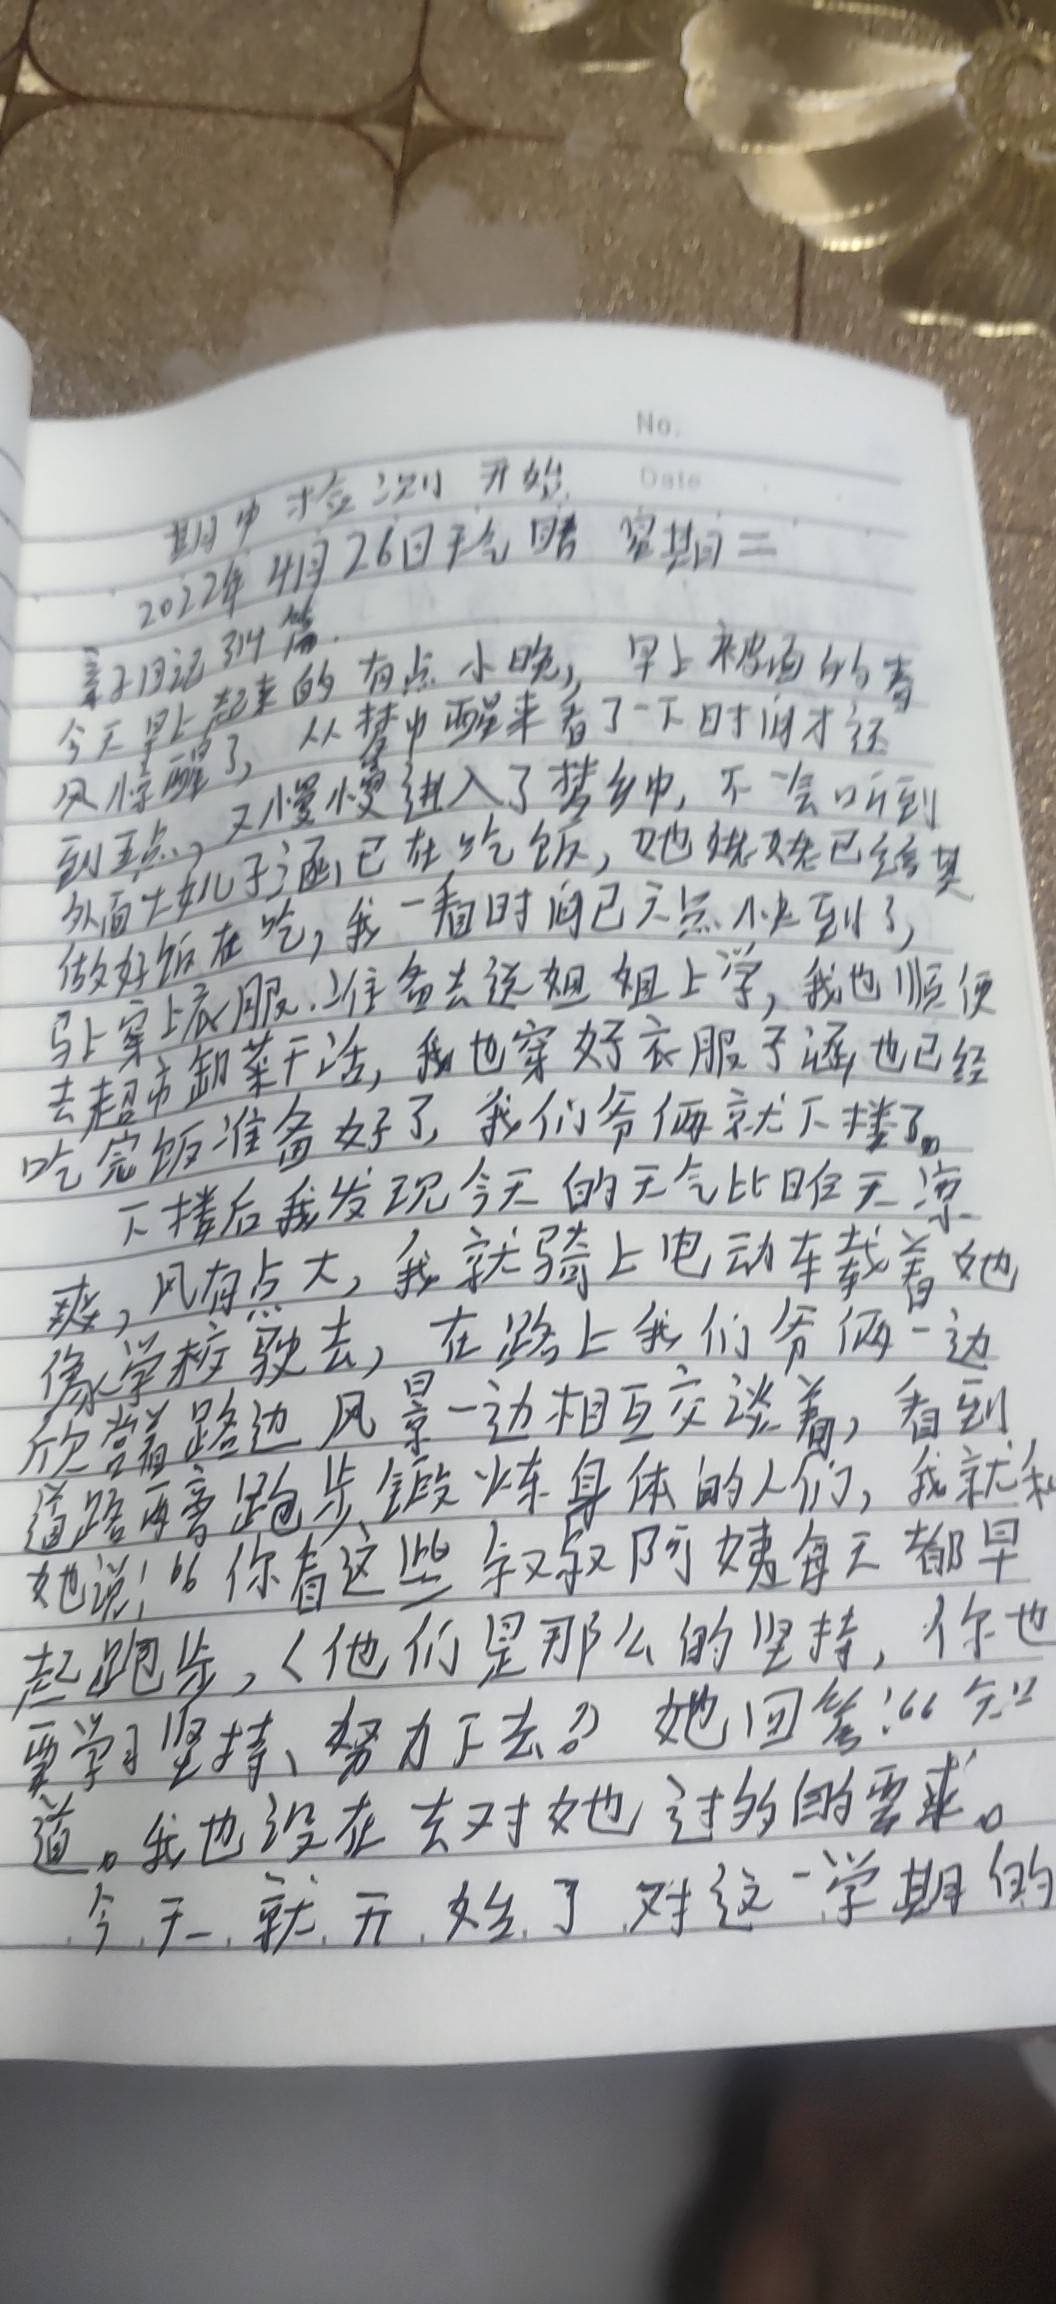 No.
Date
期中检测 开始
2022年4月26日 天气 晴 星期二
亲子日记 314 篇
今天早上起来的有点小晚，早上被面的春
风惊醒了，从梦中醒来看了一下时间才还
到五点，又慢慢进入了梦乡中，不一会听到
外面大女儿子涵已在吃饭，她姥姥已给其
做好饭在吃，我一看时间已六点快到了，
马上穿上衣服.准备去送姐姐上学，我也顺便
去超市卸菜干活，我也穿好衣服子涵也已经
吃完饭准备好了，我们爷俩就下楼了。
下楼后我发现今天的天气比昨天凉
爽，风有点大，我就骑上电动车载着她
像学校驶去，在路上我们爷俩一边
欣赏着路边风景一边相互交谈着，看到
道路两旁跑步锻炼身体的人们，我就和
她说：“你看这些叔叔阿姨每天都早
起跑步，他们是那么的坚持，你也
要学习坚持、努力下去。” 她回答：“知
道。我也没在去对她过多的要求。
今天就开始了对这一学期的